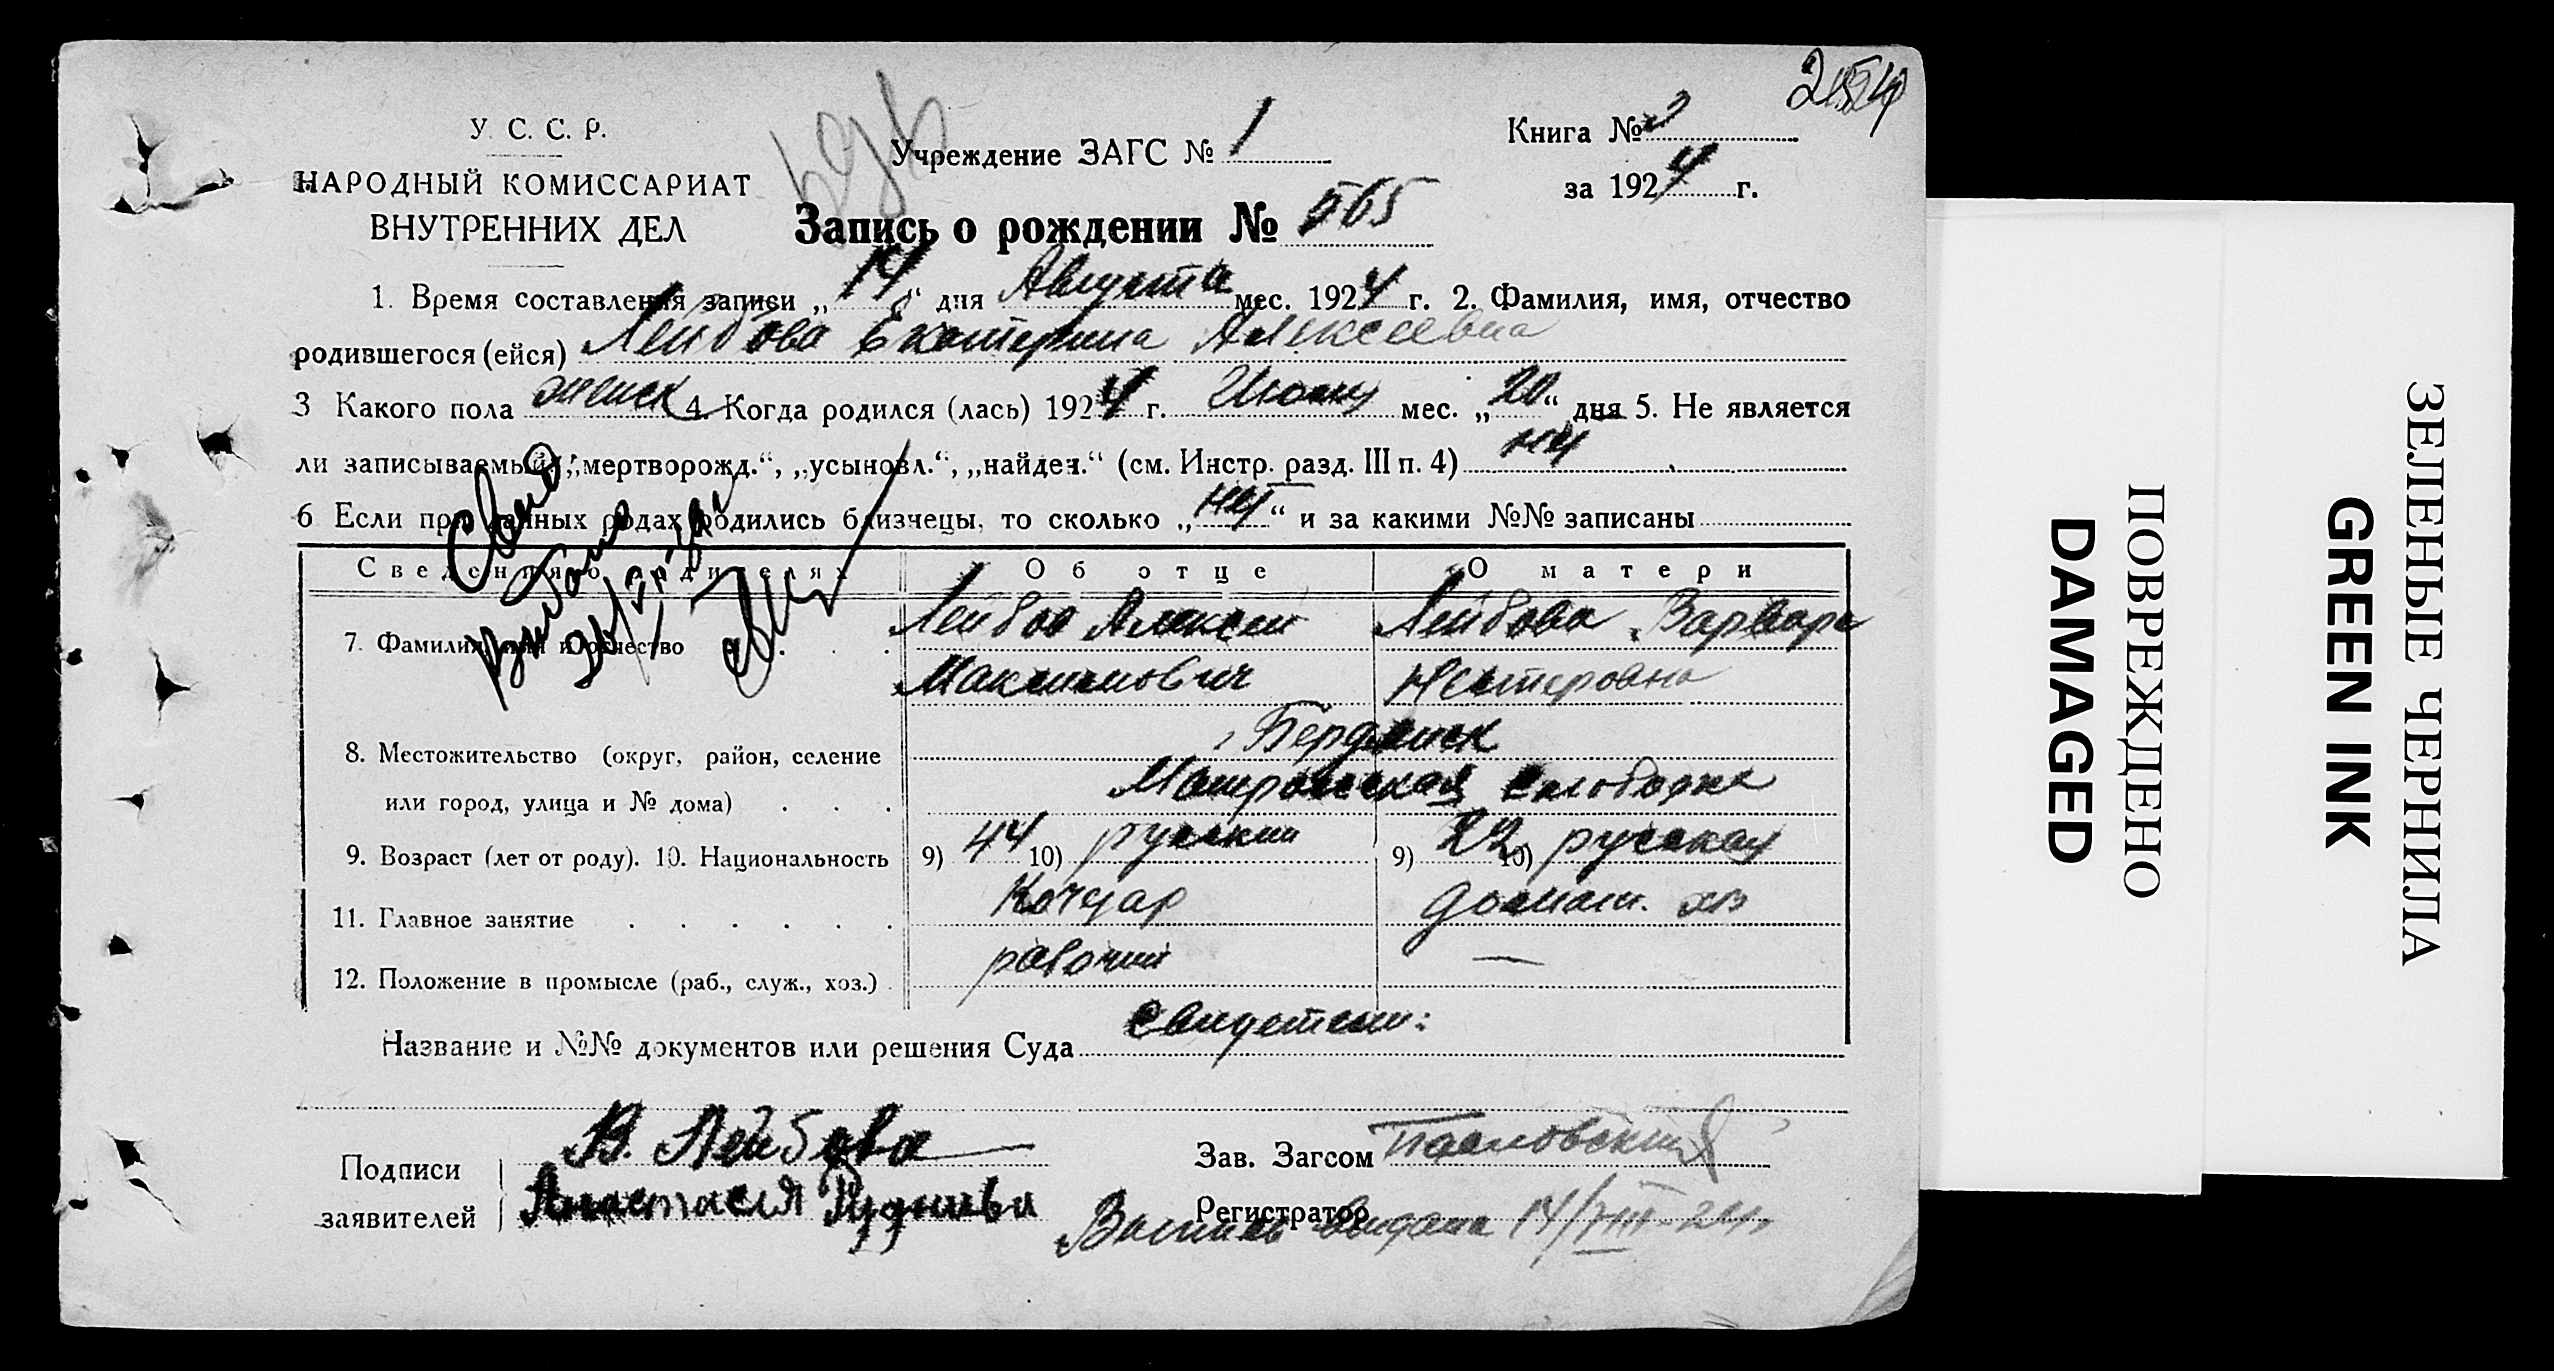 У. С. С. Р.
НАРОДНЫЙ КОМИССАРИАТ
ВНУТРЕННИХ ДЕЛ
Учреждение ЗАГС № 1
Книга № 2
за 1924 г.
Запись о рождении № 565
1. Время составления записи „14“ дня Августа мес. 1924 г. 2. Фамилия, имя, отчество
родившегося (ейся) Лейбова Екатерина Алексеевна
3 Какого пола женск 4. Когда родился (лась) 1924 г. мес. „20“ дня 5. Не является
ли записываемый: „мертворожд.“, „усыновл.“, „найден.“ (см. Инстр. разд. III п. 4) нет
6 Если при данных родах родились близнецы, то сколько „нет“ и за какими №№ записаны
Сведения о родителях Об отце О матери
7. Фамилия, имя и отчество Лейбов Алексей Лейбова Варвара
Максимович Нестеровна
8. Местожительство (округ, район, селение г Бердянск
или город, улица и № дома) Матросская слободка
9. Возраст (лет от роду). 10. Национальность 9) 44 10) русский 9) 22 10) русская
11. Главное занятие Кочегар домаш. хоз
12. Положение в промысле (раб., служ., хоз.) рабочий —
Название и №№ документов или решения Суда свидетели:
Подписи В. Лейбова Зав. Загсом
заявителей Анастасия Регистратор
выдана 14/VIII-24г
ПОВРЕЖДЕНО
DAMAGED
ЗЕЛЕНЫЕ ЧЕРНИЛА
GREEN INK